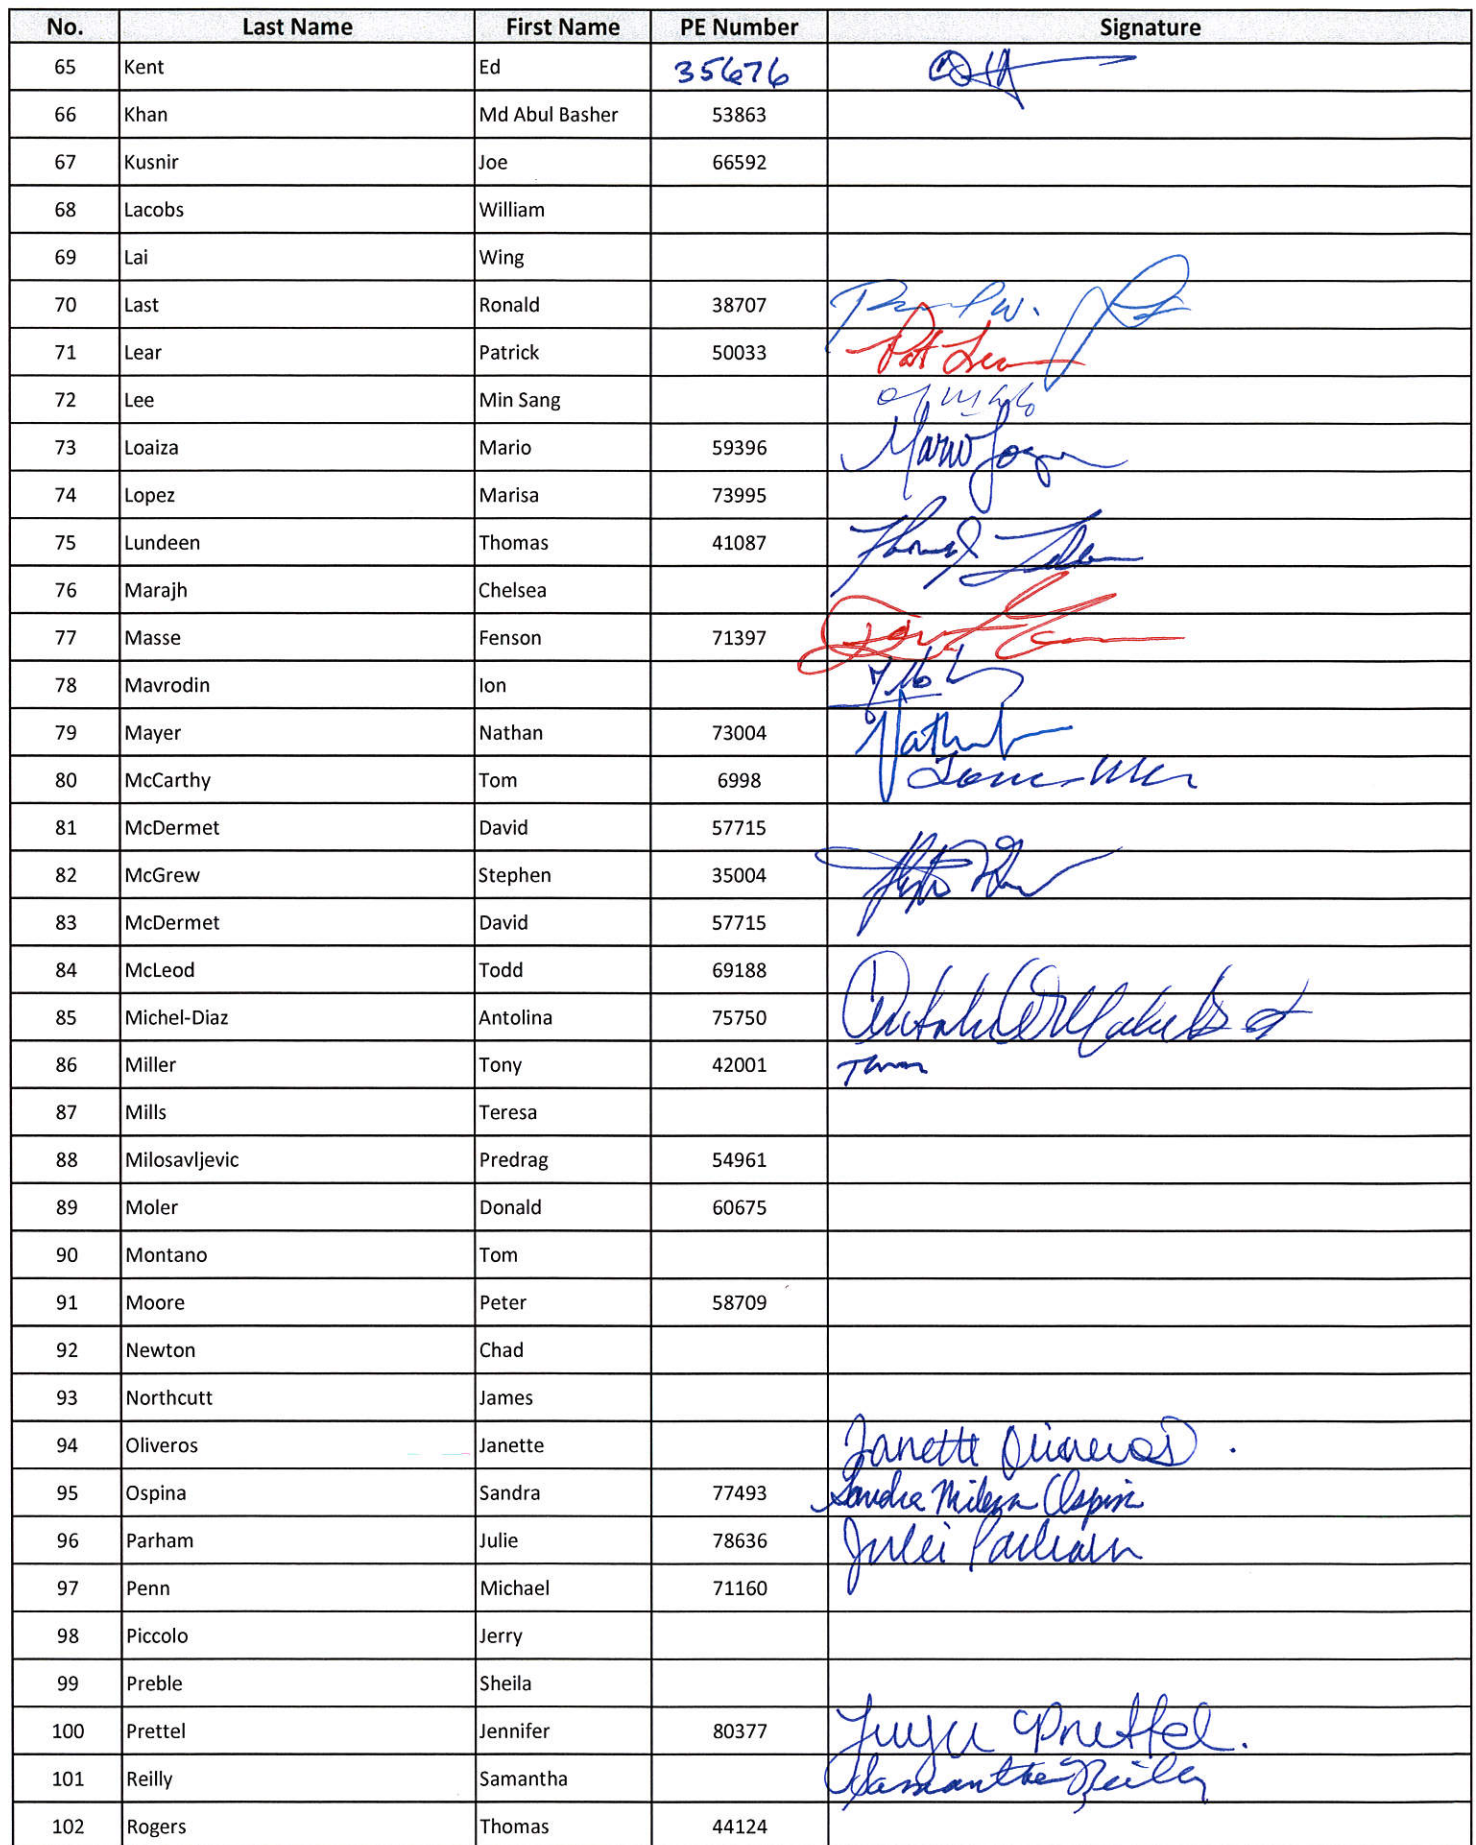 No. Last Name First Name PE Number Signature
65 Kent Ed 35676
66 Khan Md Abul Basher 53863
67 Kusnir Joe 66592
68 Lacobs William
69 Lai Wing
70 Last Ronald 38707
71 Lear Patrick 50033 Pat Lear
72 Lee Min Sang
73 Loaiza Mario 59396 Mario
74 Lopez Marisa 73995
75 Lundeen Thomas 41087
76 Marajh Chelsea
77 Masse Fenson 71397
78 Mavrodin Ion
79 Mayer Nathan 73004
80 McCarthy Tom 6998
81 McDermet David 57715
82 McGrew Stephen 35004
83 McDermet David 57715
84 McLeod Todd 69188
85 Michel-Diaz Antolina 75750
86 Miller Tony 42001
87 Mills Teresa
88 Milosavljevic Predrag 54961
89 Moler Donald 60675
90 Montano Tom
91 Moore Peter 58709
92 Newton Chad
93 Northcutt James
94 Oliveros Janette Janette Oliveros
95 Ospina Sandra 77493 Sandra Milena Ospina
96 Parham Julie 78636 Julie Parham
97 Penn Michael 71160
98 Piccolo Jerry
99 Preble Sheila
100 Prettel Jennifer 80377 Prettel.
101 Reilly Samantha Samantha Reilly
102 Rogers Thomas 44124